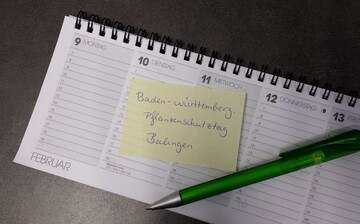 9 MONTAG
10 DIENSTAG
11 MITTWOCH
12 DONNERSTAG
13
Baden-Württemberg
Pflanzenschutztag
Balingen
FEBRUAR